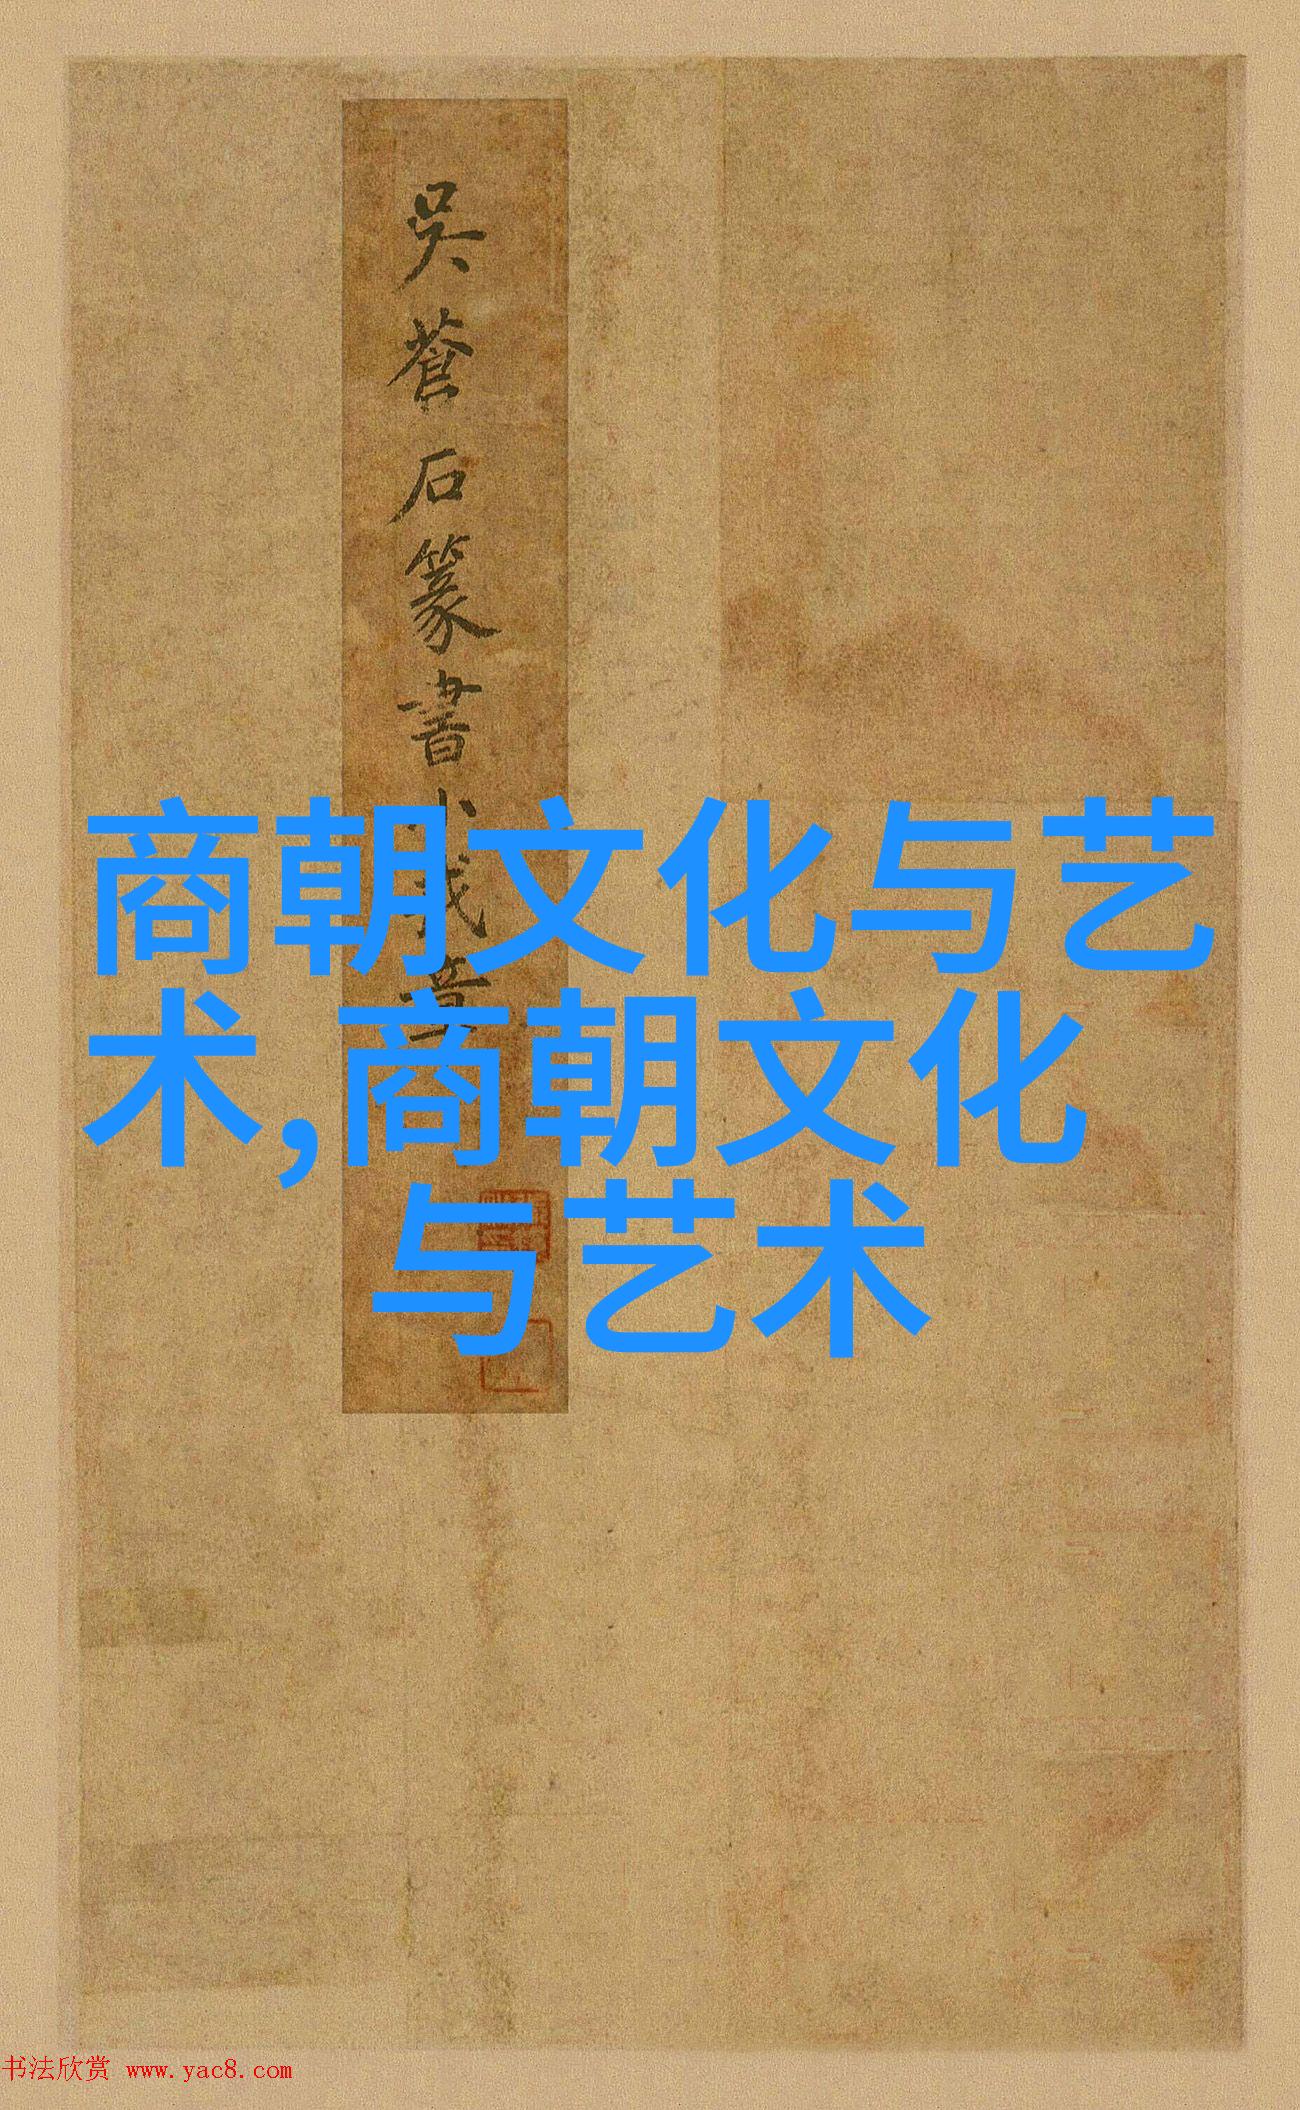 吳蒼石篆書
商朝文化与艺
术,商朝文化
与艺术
书法欣赏 www.yac8.com